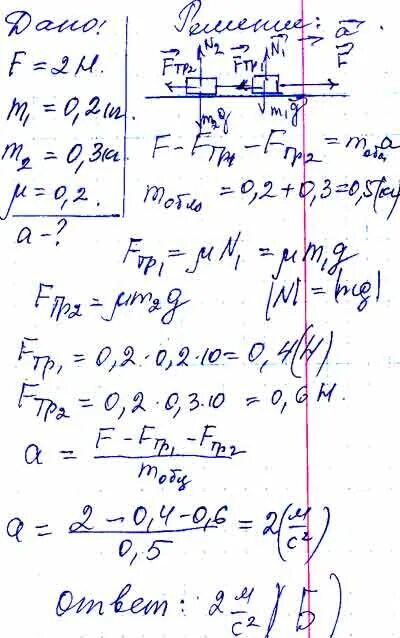 Дано:
F = 2 Н.
m₁ = 0,2 кг
m₂ = 0,3 кг
μ = 0,2.
a - ?
Решение: a⃗
N⃗₂ F⃗тр₂ F⃗тр₁ N⃗₁ F⃗
m₂g⃗ m₁g⃗
F - Fтр₁ - Fтр₂ = mобщ a
mобщ = 0,2 + 0,3 = 0,5 (кг)
Fтр₁ = μN₁ = μm₁g
Fтр₂ = μm₂g |N| = |mg|
Fтр₁ = 0,2 · 0,2 · 10 = 0,4 (Н)
Fтр₂ = 0,2 · 0,3 · 10 = 0,6 Н.
a = (F - Fтр₁ - Fтр₂) / mобщ
a = (2 - 0,4 - 0,6) / 0,5 = 2 (м/с²)
Ответ: 2 м/с² (Б)